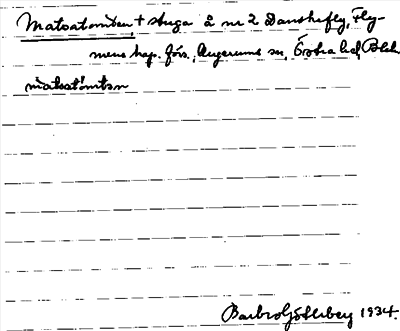 Matsatomten + stuga å nr 2 Danskefly, Fly-
mens kap. förs., Augerums sn, Östra hd, Blek.
matsatòmtən
Barbro Söderberg 1934.